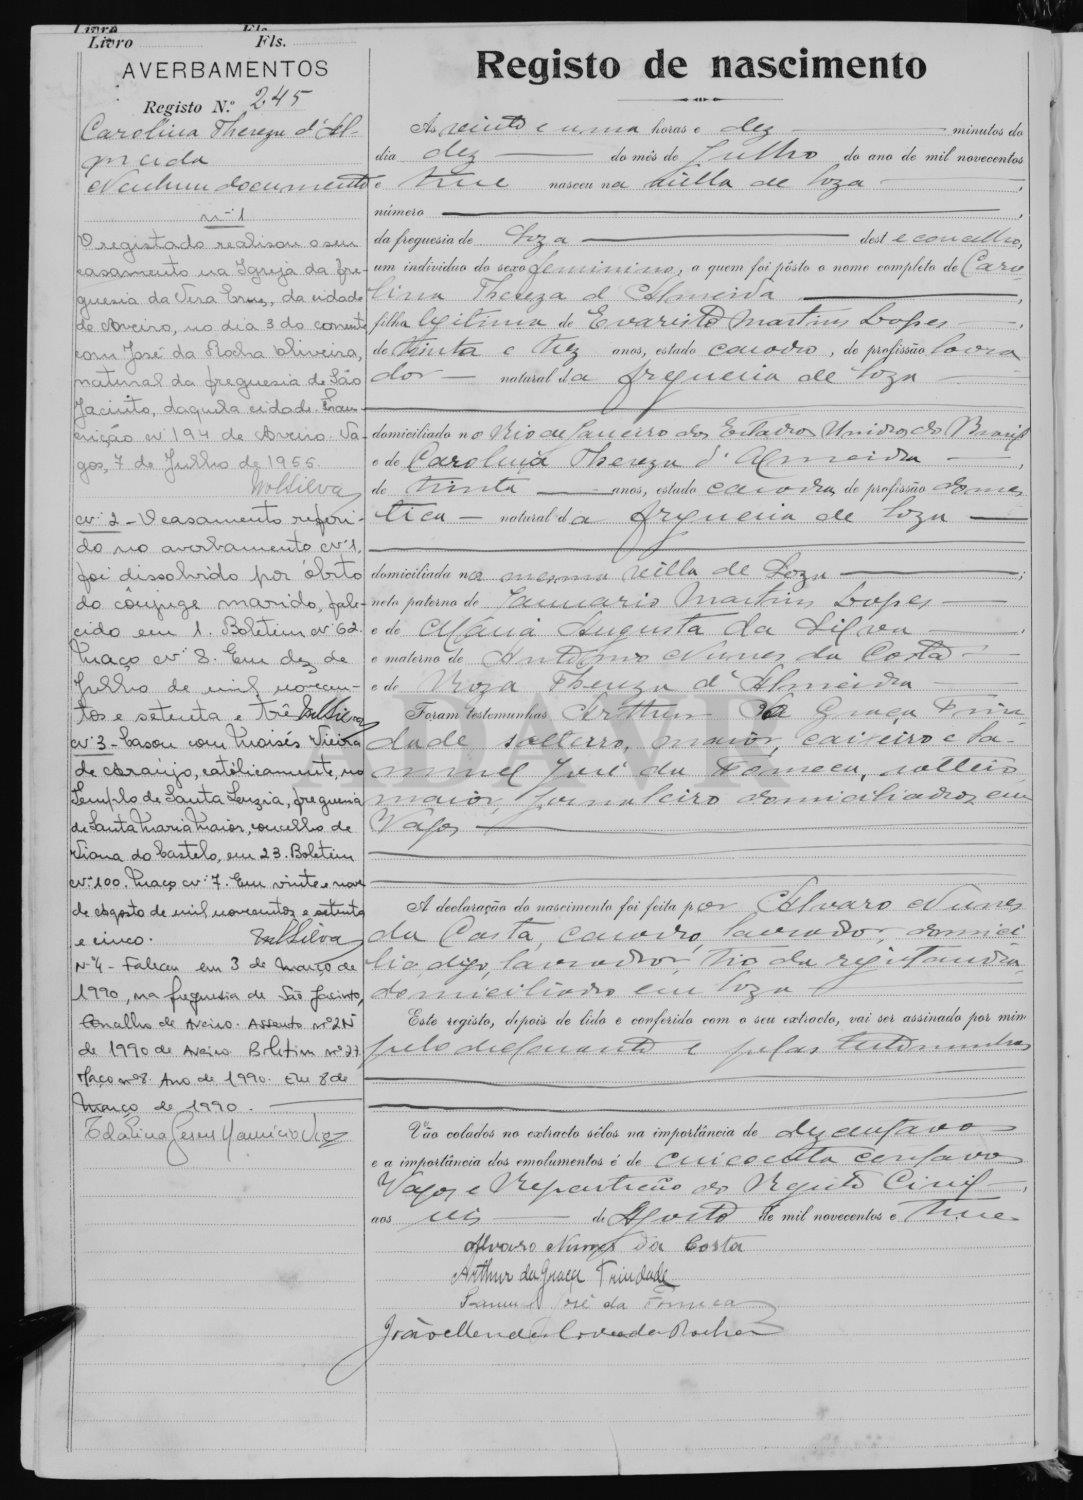 Livro Fls.
Livro Fls.
AVERBAMENTOS
Registo N.º 245
Carolina Thereza d'Al-
meida
Nenhum documento
nº 1
O registado realisou o seu
casamento na Igreja da fre-
guesia da Vera Cruz, da cidade
de Aveiro, no dia 3 do corrente
com José da Rocha Oliveira,
natural da freguesia de São
Jacinto, daquela cidade. Trans-
crição nº 194 de Aveiro. Va-
gos, 7 de Julho de 1955.
nº 2 - O casamento referi-
do no averbamento nº 1,
foi dissolvido por óbito
do cônjuge marido, fale-
cido em 1. Boletim nº 62.
Maço nº 8. Em dez de
Julho de mil novecen-
tos e setenta e três
nº 3 - Casou com Moisés Vieira
de Araújo, catòlicamente, no
Templo de Santa Luzia, freguesia
de Santa Maria Maior, concelho de
Viana do Castelo, em 23. Boletim
nº 100. Maço nº 7. Em vinte e nove
de Agosto de mil novecentos e setenta
e cinco.
Nº 4 - Faleceu em 3 de Março de
1990, na freguesia de São Jacinto,
Concelho de Aveiro. Assento nº 2N
de 1990 de Aveiro Boletim nº 27
Maço nº 8. Ano de 1990. Em 8 de
Março de 1990.
Registo de nascimento
Ás vinte e uma horas e dez minutos do
dia dez do mês de Julho do ano de mil novecentos
e treze nasceu na villa de Soza,
número ,
da freguesia de Soza deste concelho,
um individuo do sexo feminino, a quem foi pôsto o nome completo de Caro-
lina Thereza d'Almeida,
filha legitima de Evaristo Martins Lopes,
de trinta e trez anos, estado casado, de profissão lavra
dor natural da freguesia de Soza
domiciliado no Rio de Janeiro dos Estados Unidos do Brazil
e de Carolina Thereza d'Almeida,
de trinta anos, estado casada, de profissão domes
tica natural da freguesia de Soza
domiciliada na mesma villa de Soza;
neto paterno de Januario Martins Lopes
e de Maria Augusta da Silva,
e materno de Antonio Nunes da Costa
e de Roza Thereza d'Almeida
Foram testemunhas Arthur da Graça Trin
dade solteiro, maior, caixeiro e Sa-
muel José da Fonseca, solteiro
maior, jornaleiro domiciliados em
Vagos
A declaração do nascimento foi feita por Alvaro Nunes
da Costa, casado, lavrador, domici
lio digo, lavrador, tio da registanda
domiciliado em Soza
Este registo, depois de lido e conferido com o seu extracto, vai ser assinado por mim
pelo declarante e pelas testemunhas
Vão colados no extracto sêlos na importância de dez centavos
e a importância dos emolumentos é de cincoenta centavos
Vagos e Repartição do Registo Civil,
aos seis de Agosto de mil novecentos e treze
Alvaro Nunes da Costa
Arthur da Graça Trindade
Samuel José da Fonseca
ADAVR